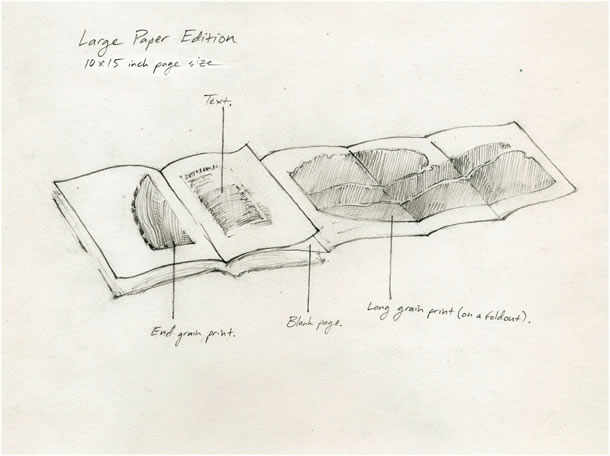 Large Paper Edition
10x15 inch page size
Text.
End grain print.
Blank page.
Long grain print (on a foldout).